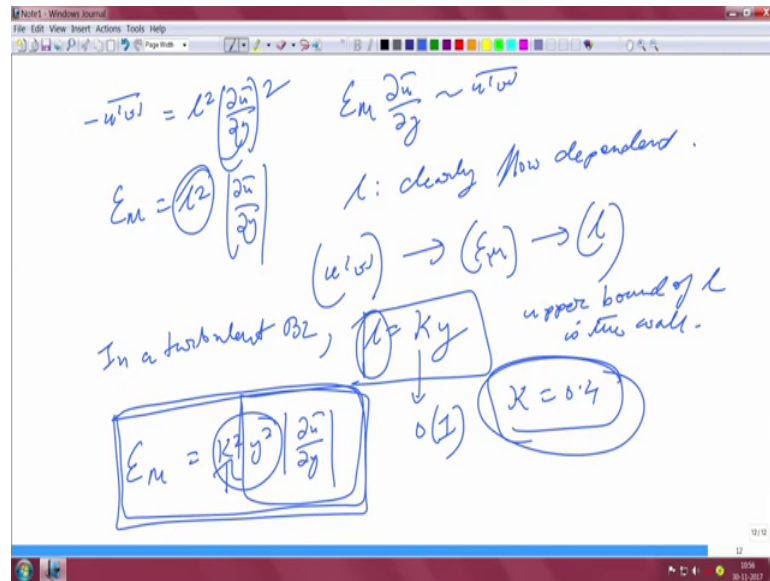 Note1 - Windows Journal
File Edit View Insert Actions Tools Help
Page Width
B I
-\overline{u'v'} = l² (∂ū/∂y)²
ε_M ∂ū/∂y ~ \overline{u'v'}
ε_M = l² |∂ū/∂y|
l : clearly flow dependend.
(u'v') → (ε_M) → (l)
In a turbulent BL, l = Ky
upper bound of l
is the wall.
O(1)
K = 0.4
ε_M = K² y² |∂ū/∂y|
12/12
12
10:56
30-11-2017